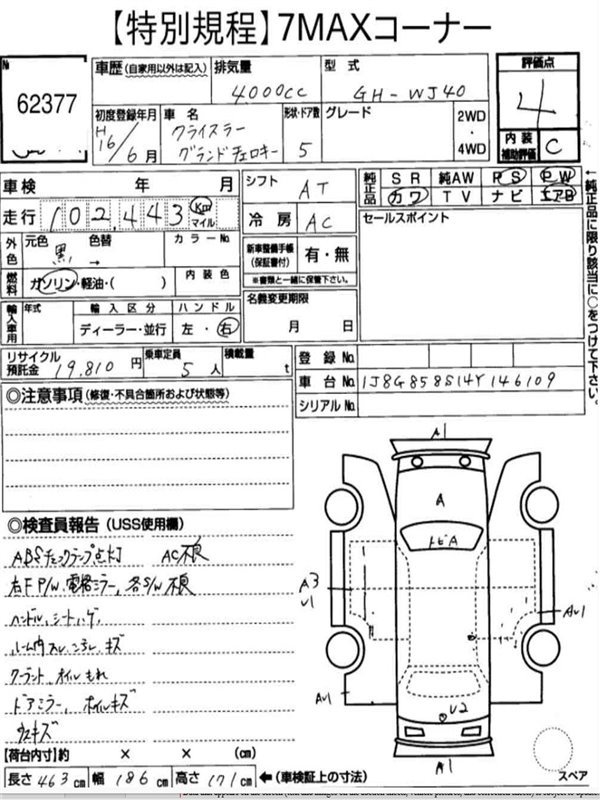 【特別規程】7MAXコーナー
№ 62377
車歴 (自家用以外は記入) 排気量 4000CC 型式 GH-WJ40
評価点 4
内装補助評価 C
初度登録年月 H16/6月
車名 クライスラー グランドチェロキー
形状・ドア数 5
グレード
2WD・4WD
車検 年 月
走行 102,443 Km マイル
シフト AT
冷房 AC
純正品 SR 純AW PS PW
カワ TV ナビ エアB
←純正品に限り該当に○をつけて下さい。
セールスポイント
外色 元色 黒 色替 → カラーNo.
燃料 ガソリン・軽油・( ) 内装色
新車整備手帳(保証書付) 有・無
※書類と一緒に保管下さい。
名義変更期限
月 日
輸入車用 年式 輸入区分 ハンドル
ディーラー・並行 左・右
リサイクル預託金 19,810円 乗車定員 5人 積載量 t
登録No.
車台No. 1J8G858S14Y146109
シリアルNo.
◎注意事項 (修復・不具合箇所および状態等)
◎検査員報告 (USS使用欄)
ABSチェックランプ点灯 AC不良
右F P/W、電格ミラー、各S/W不良
ハンドル、シートハゲ
ルーム内スレ、コゲ、キズ
クーラント、オイルもれ
ドアミラー、ホイルキズ
A1
A
トビA
A3
U1
AU1
AU1
U2
A1
スペア
【荷台内寸】約 × × (cm)
長さ 463cm 幅 186cm 高さ 171cm ←(車検証上の寸法)